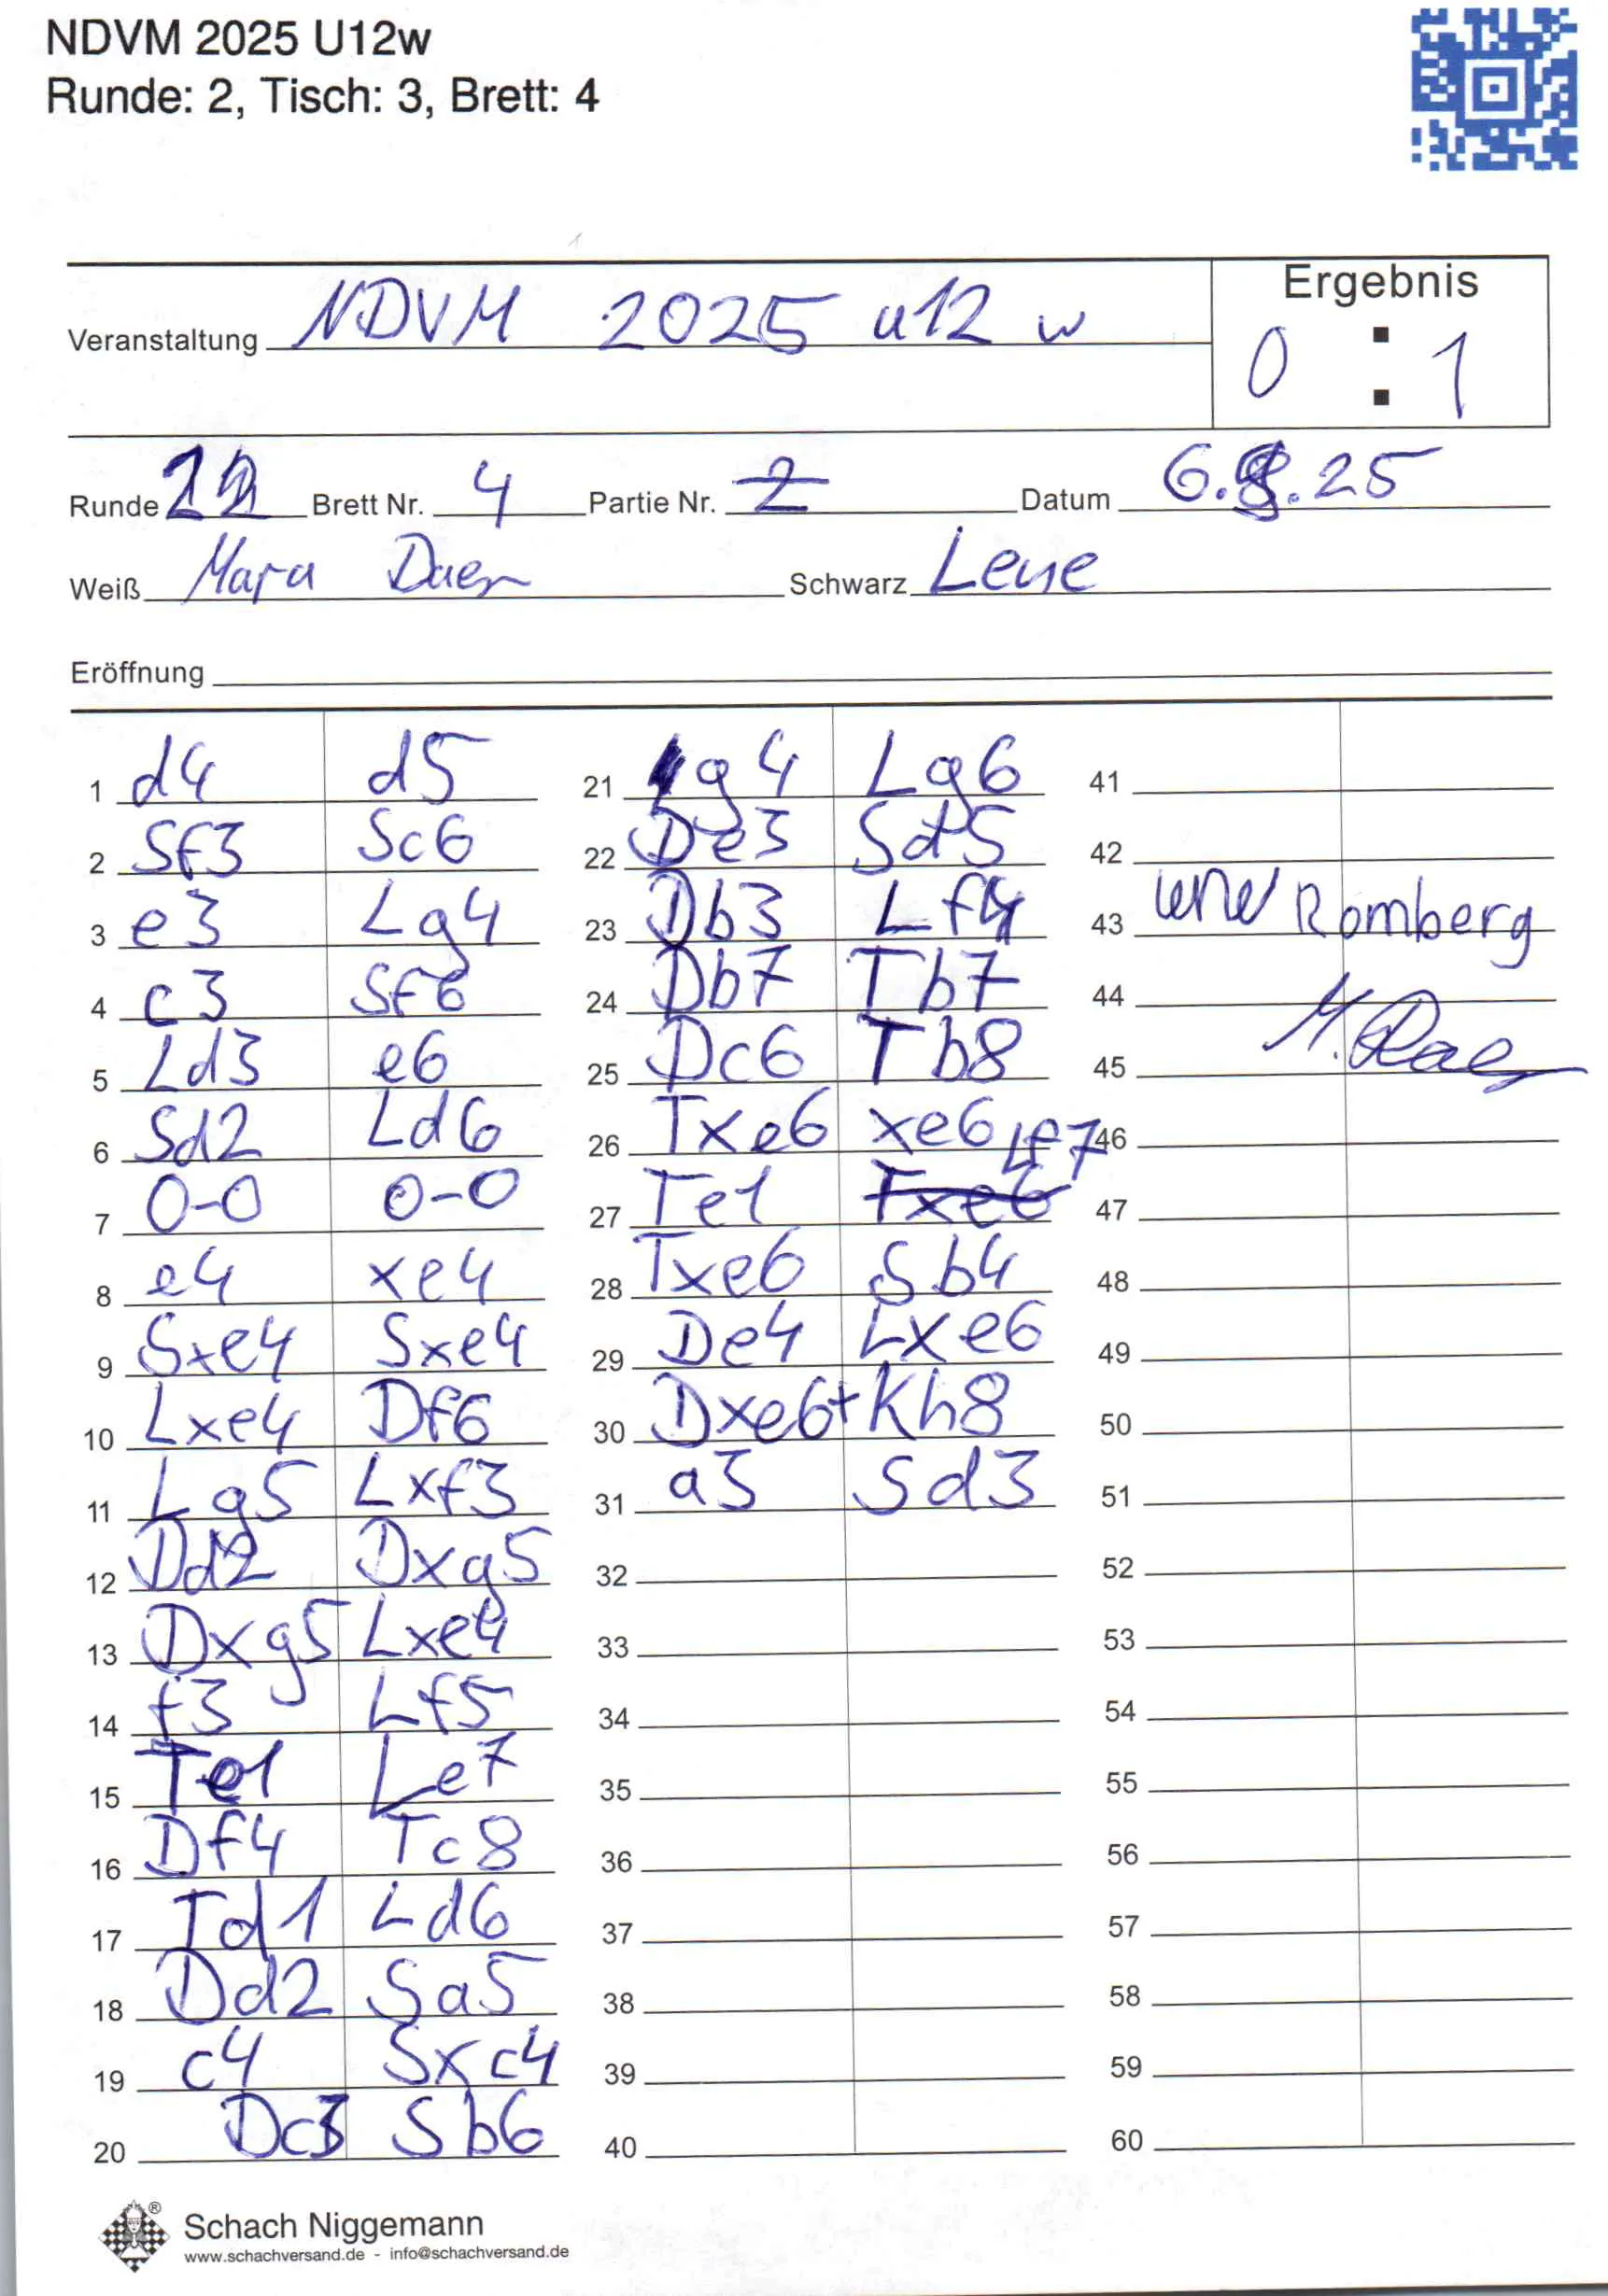 NDVM 2025 U12w
Runde: 2, Tisch: 3, Brett: 4
Veranstaltung NDVM 2025 u12 w
Ergebnis
0 : 1
Runde 2 Brett Nr. 4 Partie Nr. 2 Datum 6.9.25
Weiß Mara Daen Schwarz Lene
Eröffnung
1 d4 d5
2 Sf3 Sc6
3 e3 Lg4
4 c3 Sf6
5 Ld3 e6
6 Sd2 Ld6
7 0-0 0-0
8 e4 xe4
9 Sxe4 Sxe4
10 Lxe4 Df6
11 Lg5 Lxf3
12 Dd2 Dxg5
13 Dxg5 Lxe4
14 f3 Lf5
15 Te1 Le7
16 Df4 Tc8
17 Td1 Ld6
18 Dd2 Sa5
19 c4 Sxc4
20 Dc3 Sb6
21 g4 Lg6
22 De3 Sd5
23 Db3 Lf4
24 Db7 Tb7
25 Dc6 Tb8
26 Txe6 xe6
27 Te1 Txe6 Lf7
28 Txe6 Sb4
29 De4 Lxe6
30 Dxe6+ Kh8
31 a3 Sd3
32
33
34
35
36
37
38
39
40
41
42
43 Lene Romberg
44
45 M. Daen
46
47
48
49
50
51
52
53
54
55
56
57
58
59
60
Schach Niggemann
www.schachversand.de - info@schachversand.de